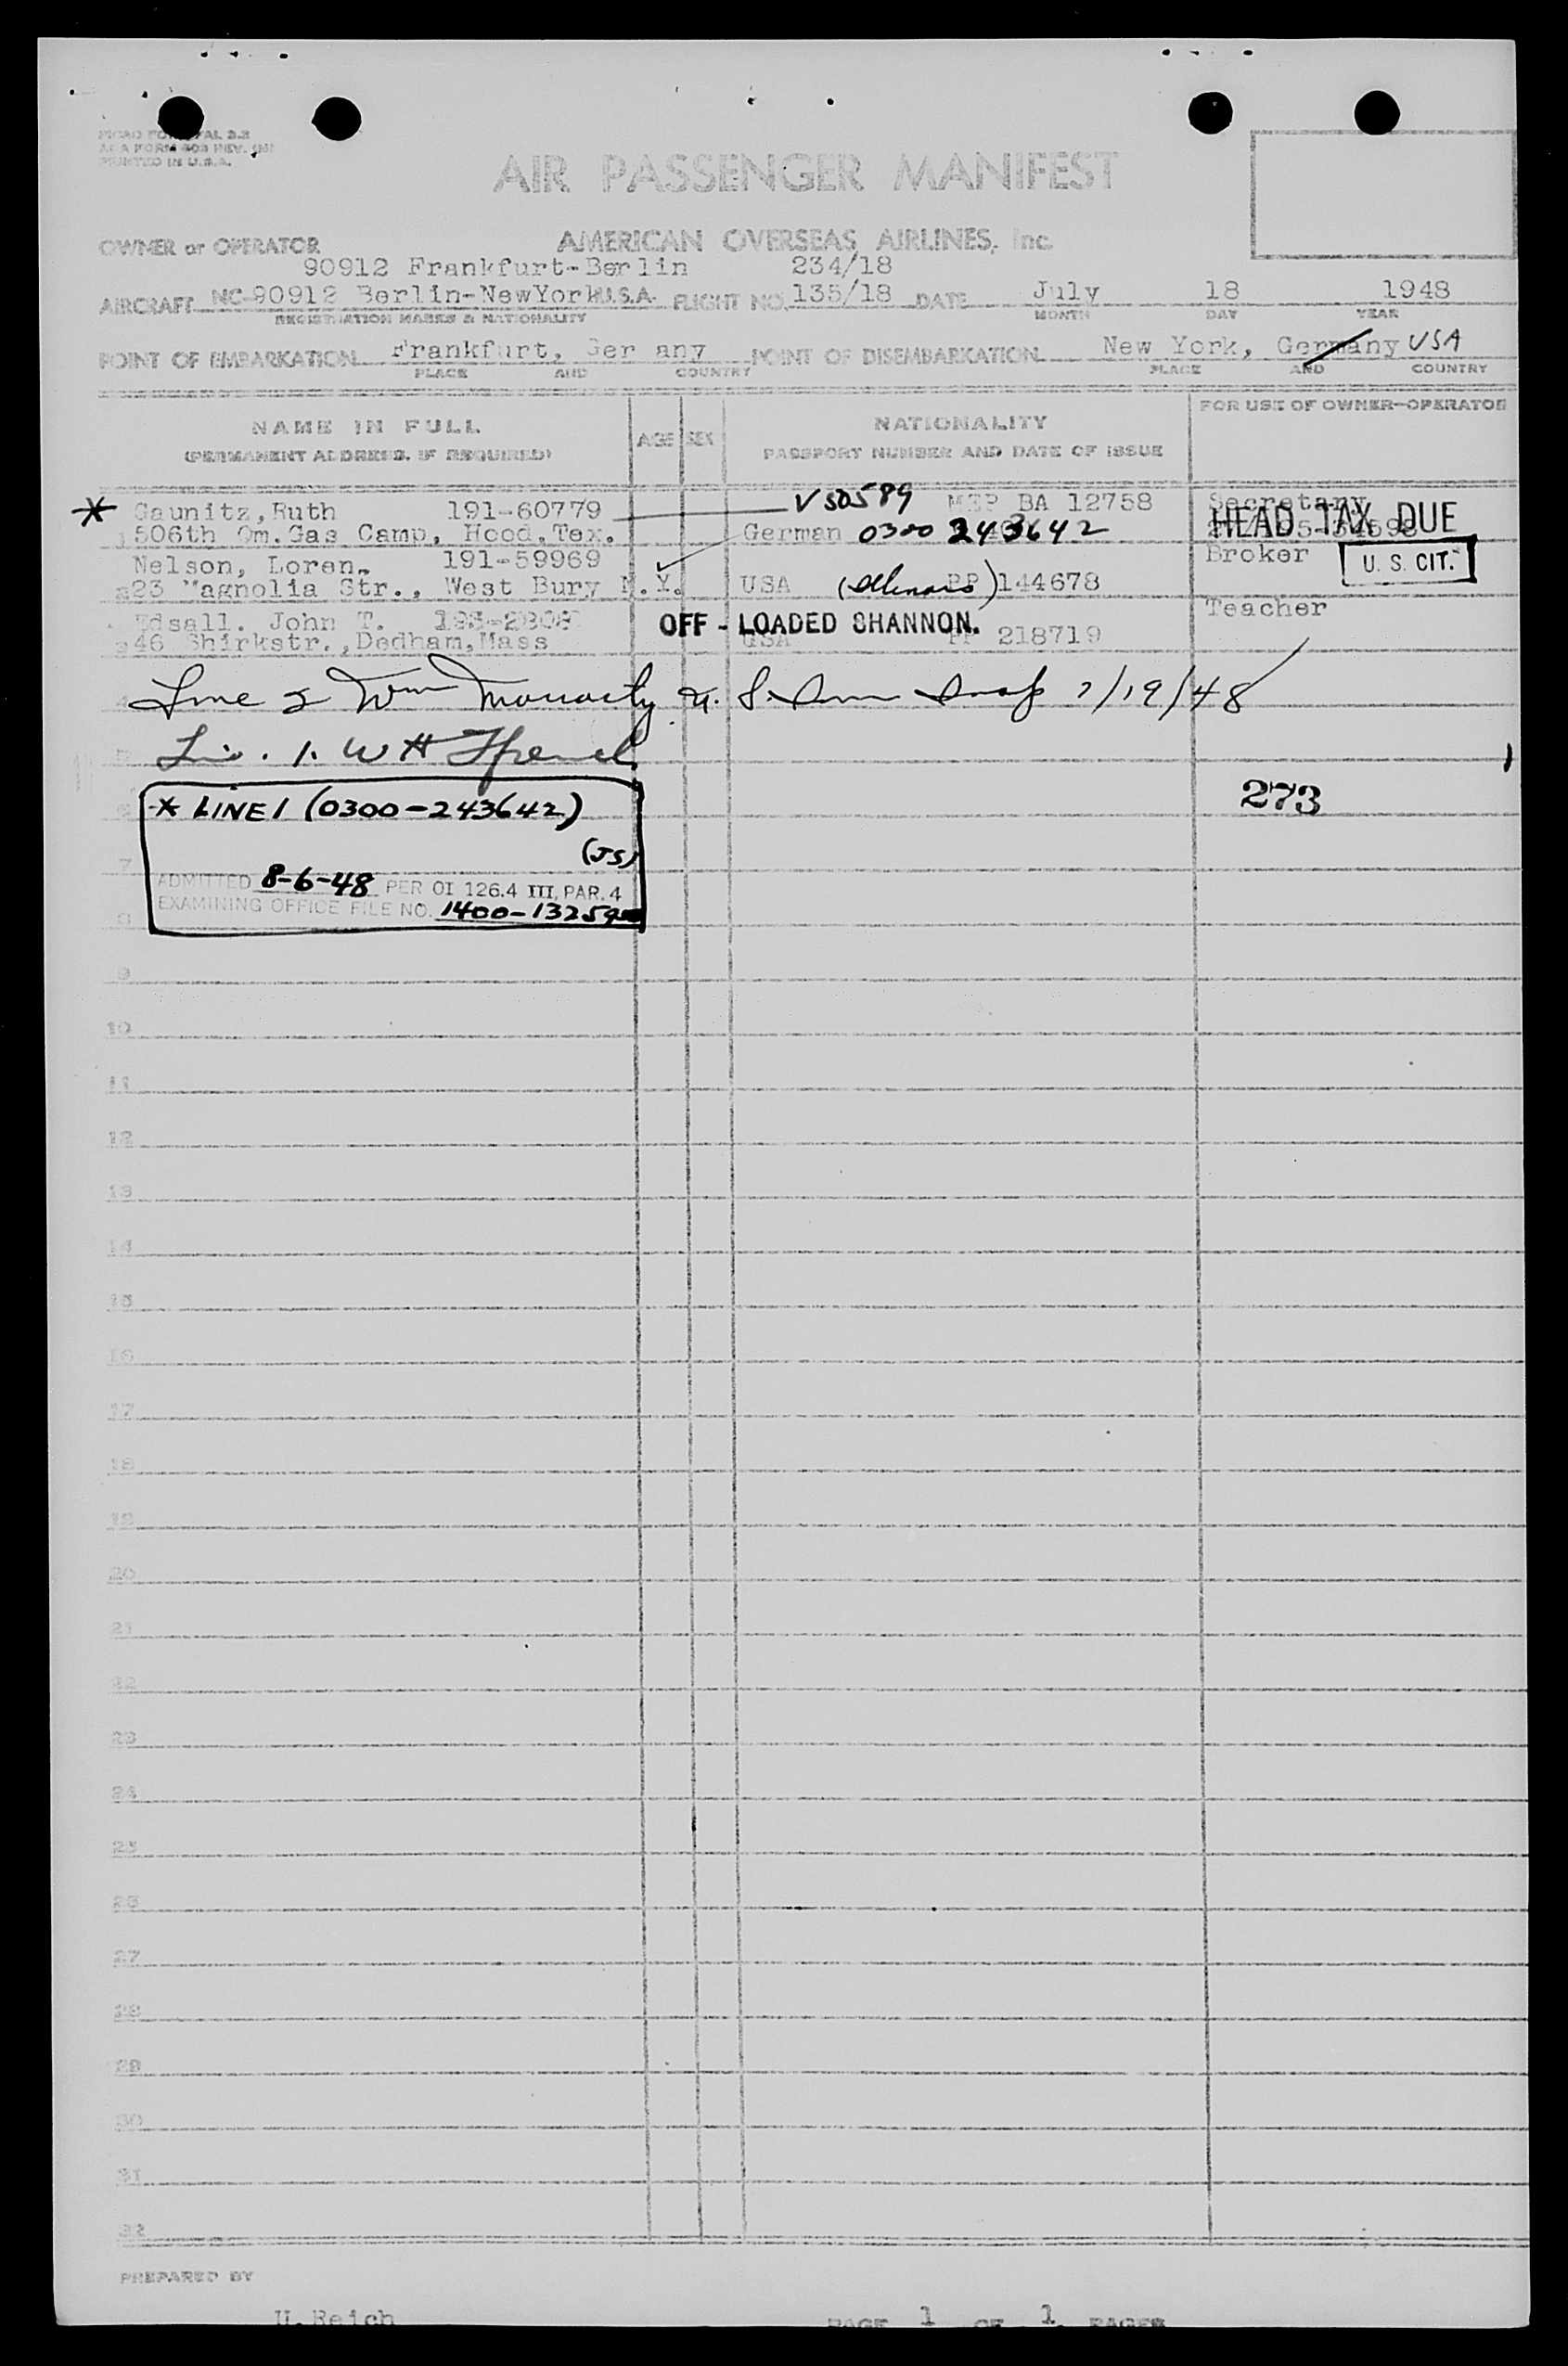 ICAO FORM FAL 2.2
AOA FORM 603 REV.
PRINTED IN U.S.A.
AIR PASSENGER MANIFEST
OWNER or OPERATOR AMERICAN OVERSEAS AIRLINES, Inc.
90912 Frankfurt-Berlin 234/18
AIRCRAFT NC-90912 Berlin-NewYork U.S.A. FLIGHT NO. 135/18 DATE July 18 1948
REGISTRATION MARKS & NATIONALITY MONTH DAY YEAR
POINT OF EMBARKATION Frankfurt, Ger any POINT OF DISEMBARKATION New York, Germany USA
PLACE AND COUNTRY PLACE AND COUNTRY
NAME IN FULL
(PERMANENT ADDRESS, IF REQUIRED)
AGE SEX
NATIONALITY
PASSPORT NUMBER AND DATE OF ISSUE
FOR USE OF OWNER-OPERATOR
* Gaunitz, Ruth 191-60779 V50589 BA 12758 Secretary
1 506th Qm. Gas Camp, Hood, Tex. German 0300 243642 HEAD TAX DUE
Nelson, Loren 191-59969 Broker U. S. CIT.
2 23 Magnolia Str., West Bury N.Y. USA PP 144678
Edsall. John T. OFF - LOADED SHANNON. Teacher
3 46 Shirkstr., Dedham, Mass USA PP 218719
4 Line 2 Wm Moriarty 7/19/48
5 Lin. 1. W H French
273
6 * LINE 1 (0300-243642)
7 (JS)
ADMITTED 8-6-48 PER OI 126.4 III, PAR. 4
8 EXAMINING OFFICE FILE NO. 1400-13259
9
10
11
12
13
14
15
16
17
18
19
20
21
22
23
24
25
26
27
28
29
30
31
32
PREPARED BY
U. Reich PAGE 1 OF 1 PAGES